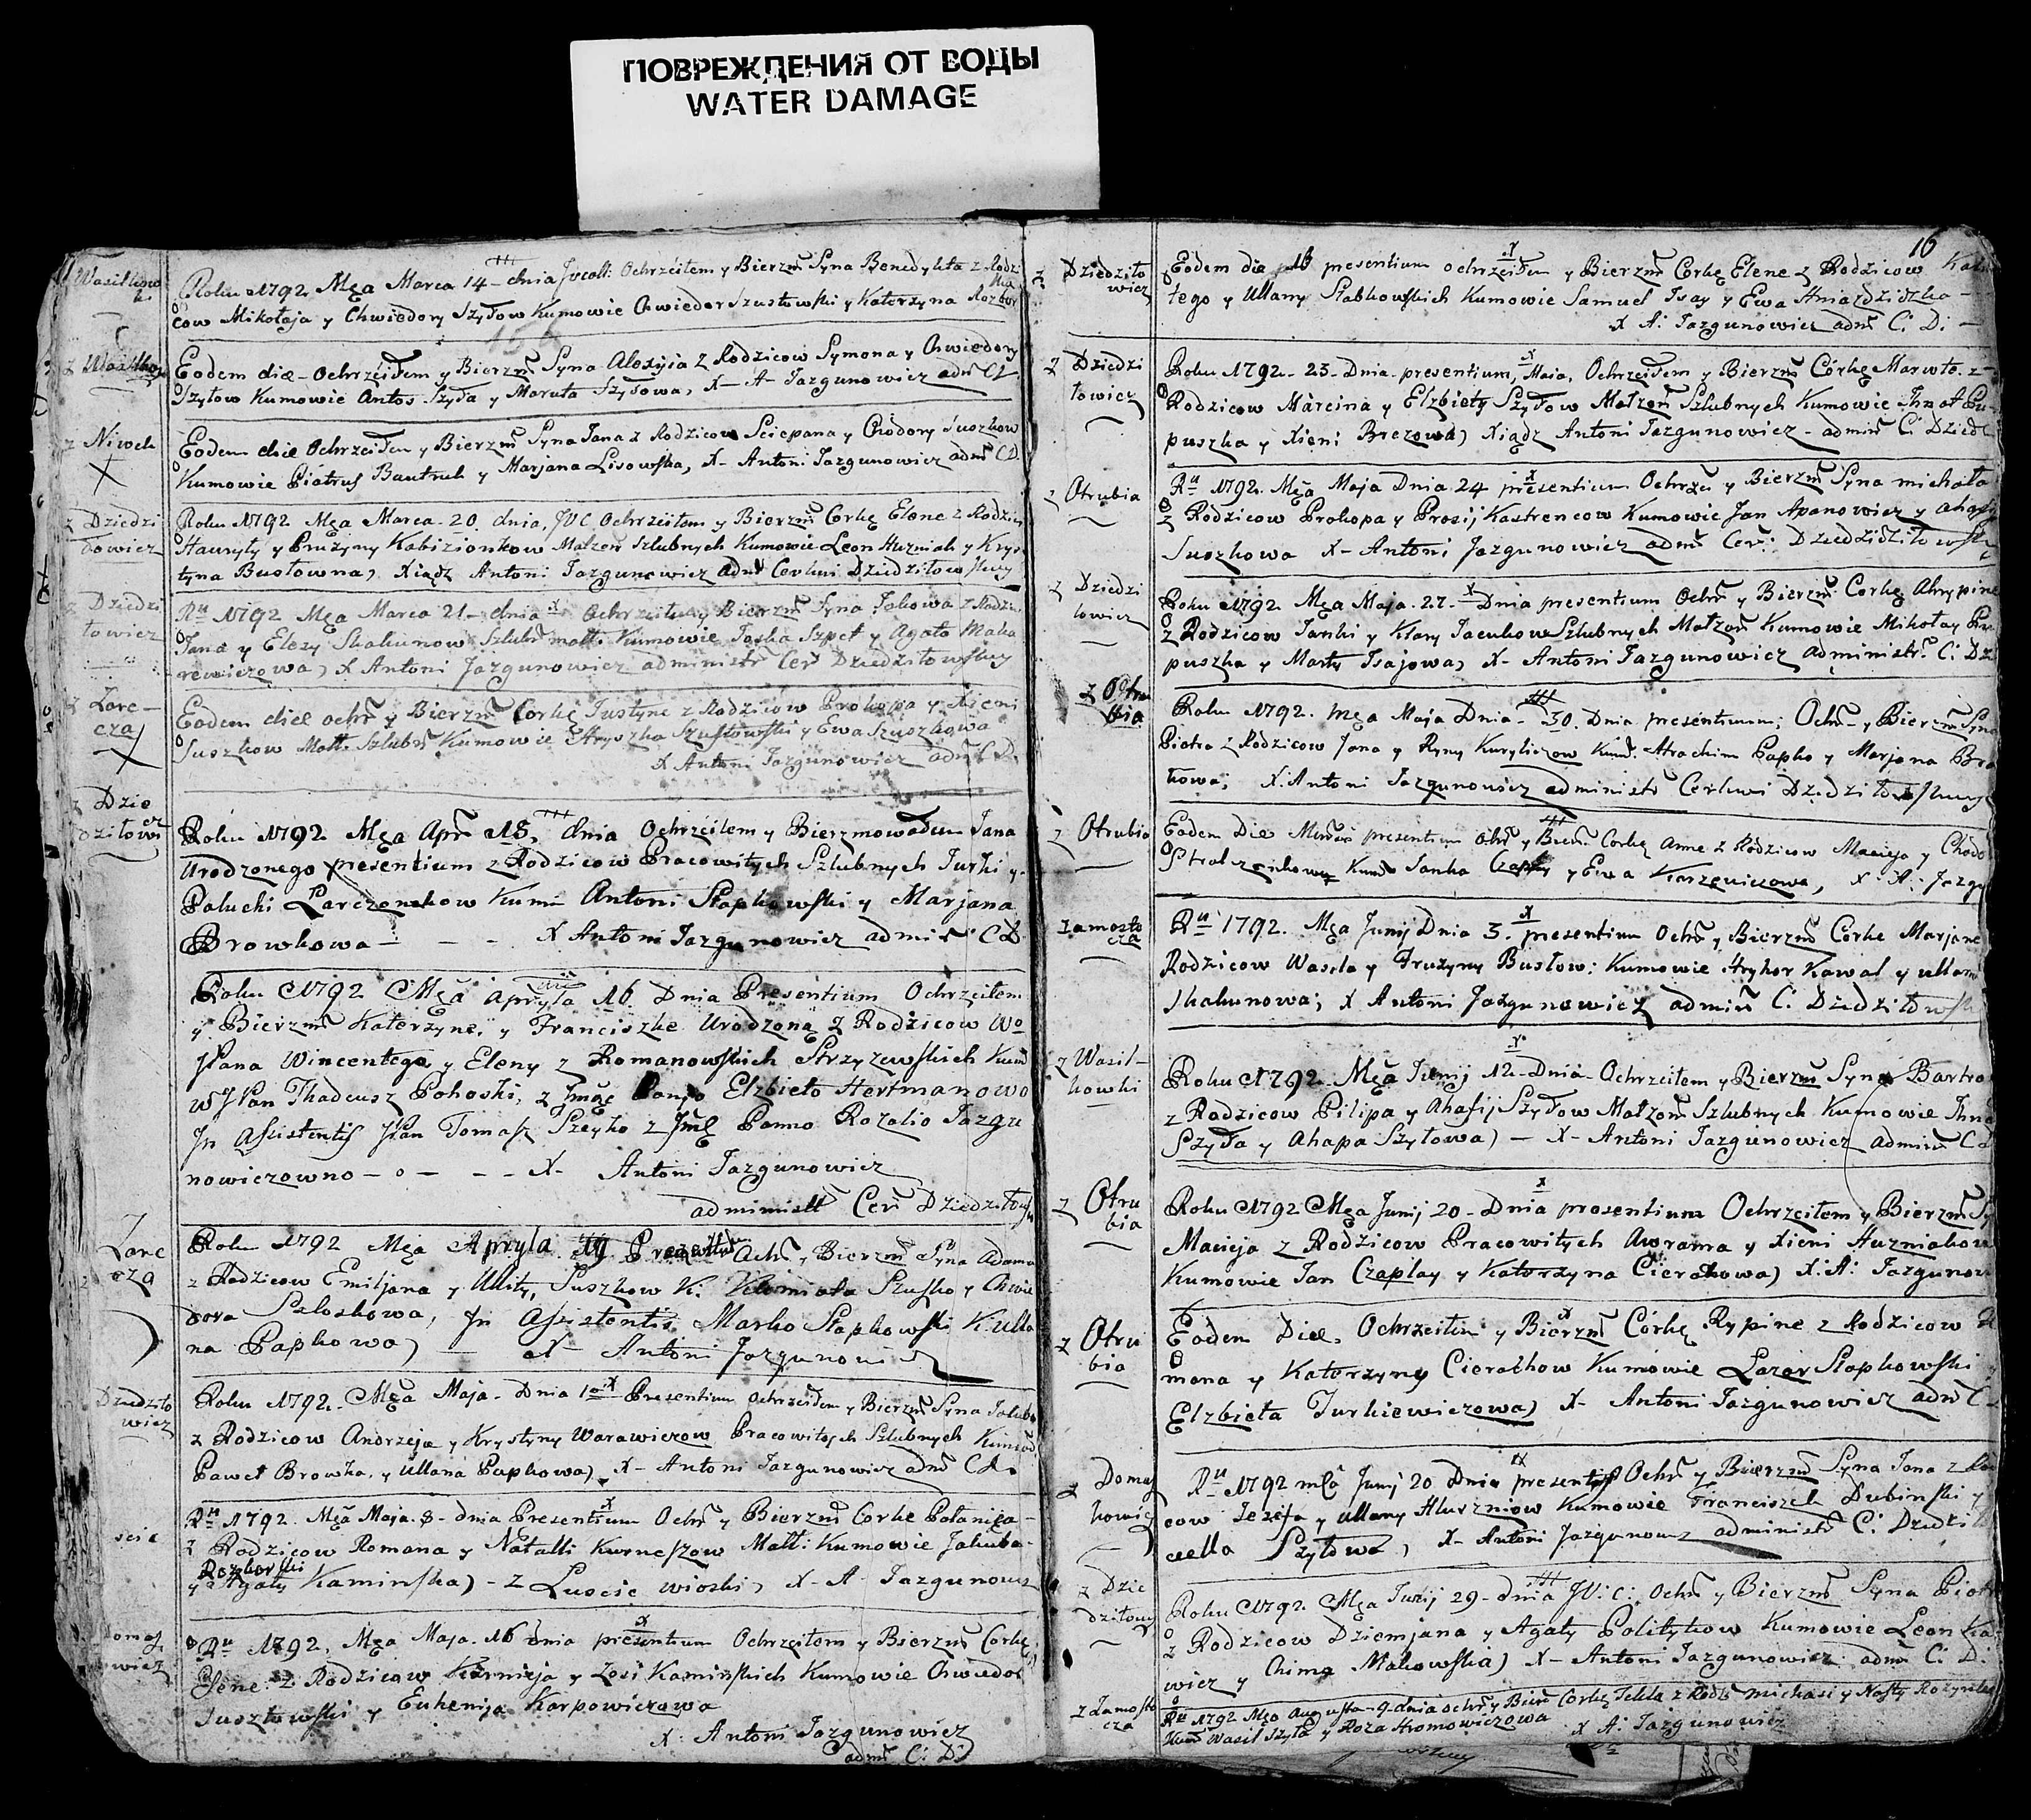 ПОВРЕЖДЕНИЯ ОТ ВОДЫ
WATER DAMAGE
Wasilkow
Roku 1792 Mca Marca 14 - dnia Jvcall: Ochrzciłem y Bierzm Syna Benedykta z Rodzi
cow Mikołaja y Chwiedory Szyłow Kumowie Chwiedor Szustowski y Katerzyna
Eodem die - Ochrzciłem y Bierzm Syna Alexyja z Rodzicow Symona y Chwiedory
Szyłow Kumowie Antos Szyła y Maruta Szyłowa, X - A - Jazgunowicz adm
z Niwek
Eodem die Ochrzciłem y Bierzm Syna Jana z Rodzicow Sciepana y Chodory Suszkow
Kumowie Piotruś Bautruk y Marjana Lisowska, X - Antoni Jazgunowicz adm C D.
z Dziedzi
łowicz
Roku 1792 Mca Marca 20. dnia, JVC Ochrzciłem y Bierzm Corkę Elene z Rodzic
Hauryły y Prużyny Kabizionkow Małzen Szlubnych Kumowie Leon Huzniak y Krys
tyna Busłowna, Xiądz Antoni Jazgunowicz adm Cerkwi Dziedziłowskiey
z Dziedzi
łowicz
Ru 1792 Mca Marca 21 - dnia Ochrzciłem y Bierzm Syna Jakowa z Rodzi
Jana y Elezy Skakunow Szlubn małł Kumowie Jaśka Szpet y Agata Maka
rewiczowa, X Antoni Jazgunowicz administr Cer Dziedziłowskiey
z Zare-
cza
Eodem die ochr y Bierzm Corkę Justyne z Rodzicow Prokopa y Xieni
Suszkow Małł. Szlubn Kumowie Hryszka Szustowski y Ewa Szuszkowa
X Antoni Jazgunowicz adm C D.
z Dzie
dziłowi
cz
Roku 1792 Mca Apr 15. dnia Ochrzciłem y Bierzmowałem Jana
Urodzonego presentium z Rodzicow Pracowitych Szlubnych Jurki y
Pałuchi Larczonkow Kum Antoni Słapkowski y Marjana
Browkowa - - - X Antoni Jazgunowicz admi C D
Roku 1792 Mca Apryla 16. Dnia Presentium Ochrzciłem
y Bierzm Katerzyne, y Franciszke Urodzoną z Rodzicow Wo
JPana Wincentego y Eleny z Romanowskich Strzyzewskich Kum
WJPan Thadeusz Pohoski, z Jmśc Panjo Elzbieto Hertmanowo
Jn Assistentis JPan Tomasz Szeyko z Jmć Panno Rozalio Jazgu
nowiczowno - o - - - X - Antoni Jazgunowicz
administ Cer Dziedziłow
Zare
cza
Roku 1792 Mca Apryla 19 Ochr y Bierzm Syna Adama
z Rodzicow Emiljana y Ullity, Suszkow K. Szusko y Chwie
dora Szloskowa, Jn Assistentis Marko Słapkowski K ulla
na Papkowa) - X - Antoni Jazgunowi
Dziedziło
wicz
Roku 1792 - Mca Maja - Dnia 10 Presentium ochrzciłem y Bierzm Syna Jakub
z Rodzicow Andrzeja y Krystyny Warawiczow Pracowitych Szlubnych Kumow
Paweł Browka, y Ullana Papkowa) X - Antoni Jazgunowicz adm C D.
scie
Ru 1792. Mca Maja 8 - dnia Presentium Ochr y Bierzm Corke Połanieją -
z Rodzicow Romana y Natalli Kurneszow Małł: Kumowie Jakuba -
Rozborski
y Agaty Kaminska) - z Luscie wioski, X - A Jazgunowicz
Ru 1792, Mca Maja. 16 dnia presentium Ochrzciłem y Bierzm Corke
Elene z Rodzicow Karnieja y Zosi Kaminskich Kumowie Chwiedor
Susztowski y Euhenija Karpowiczowa
X. Antoni Jazgunowicz
adm C: D:
16
z Dziedziło
wicz
Eodem die 16 presentium ochrzciłem y Bierzm Corkę Elene z Rodzicow
tego y Ullany Słabkowskich Kumowie Samuel Isay y Ewa Hniazdziszka -
X A: Jazgunowicz adm C: D: -
z Dziedzi
łowicz
Roku 1792 - 23 - Dnia - presentium, Maia, Ochrzciłem y Bierzm Córkę Marwte - z -
Rodzicow Marcina y Elzbiety Szyłow Małzen Szlubnych Kumowie Ihnat Pu-
puszka y Xieni Brezowa) Xiądz Antoni Jazgunowicz - admin C: Dzied
z Otrubia
Ru 1792. Mca Maja Dnia 24 presentium Ochrzci y Bierzm Syna michała
z Rodzicow Prokopa y Prosij Kastrencow Kumowie Jan Apanowicz y Ahaf
Suszkowa X - Antoni Jazgunowicz adm Cer: Dziedzidziłowski
z Dziedzi
łowicz
Roku 1792 Mca Maja 27. Dnia presentium Ochr y Bierzm Corkę Ahrypine
z Rodzicow Janki y Klary Jacukow Szlubnych Małzen Kumowie Mikołay Pu
puszka y Marty Isajowa) X - Antoni Jazgunowicz administr C: Dz
z Otru
bia
Roku 1792. Mca Maja Dnia - 30. Dnia presentium; Ochr - y Bierzm Syna
Piotra z Rodzicow Jana y Ryny Kuryliczow Kum. Atrachim Papko y Marjana Bro
kowa; X. Antoni Jazgunowicz administr Cerkwi Dziedziłowskiey
z Otrubia
Eodem Die presentium Ochr y Bierz Corkę Anne z Rodzicow Macieja y Chodo
Kum Janka y Ewa Karzeniczowa, X: A: Jazgu
z amosto
cza
Ru 1792. Mca Junij Dnia 3. presentium Ochr y Bierzm Corke Marjane
Rodzicow Wasila y Pruzyny Busłow: Kumowie Hryhor Kawal y ullana
Skakunowa; X Antoni Jazgunowicz admin C: Dziedziłowsk
z Wasil-
kowki
Roku 1792. Mca Junij 12 - Dnia - Ochrzciłem y Bierzm Syna Bartro
z Rodzicow Pilipa y Ahafij Szyłow Małzon Szlubnych Kumowie Ihna
Szyła y Ahapa Szyłowa) - X - Antoni Jazgunowicz admin C D
z Otru
bia
Roku 1792 Mca Junij 20 - Dnia presentium Ochrzciłem y Bierzm Sy
Macieja z Rodzicow Pracowitych Awrama y Xieni Huzniakow
Kumowie Jan Czaplay y Katerzyna Cierachowa) X: A: Jazgunow
z Otru
bia
Eodem Die, Ochrzciłem y Bierzm Córkę Rypine z Rodzicow
mana y Katerzyny Cierachow Kumowie Lazar Słapkowski
Elzbieta Jurkiewiczowa) X - Antoni Jazgunowicz adm C
z Domas
kowicz
Ru 1792 mca Junij 20 Dnia presentis Ochr y Bierzm Syna Jana z Ro
cow Jezefa y ullany Hlurzniow Kumowie Franciszek Dubinski y
cella Szyłowa, X - Antoni Jazgunowicz administr C: Dziedzi
z Dzie
dziłowicz
Roku 1792 Mca Junij 29 - dnia JV: C: Ochr y Bierzm Syna Piotr
z Rodzicow Dziemjana y Agaty Politykow Kumowie Leon Ka-
wicz y Chima Makowska) X - Antoni Jazgunowicz adm C: D.
z Zamosto
cza
Ru 1792 Mca Augusta - 9 - dnia ochr y Bierz Corkę Tekla z Rodz michasi y Nasty
Kum Wasil Szyła y Roza Hromowiczowa X A: Jazgunowicz